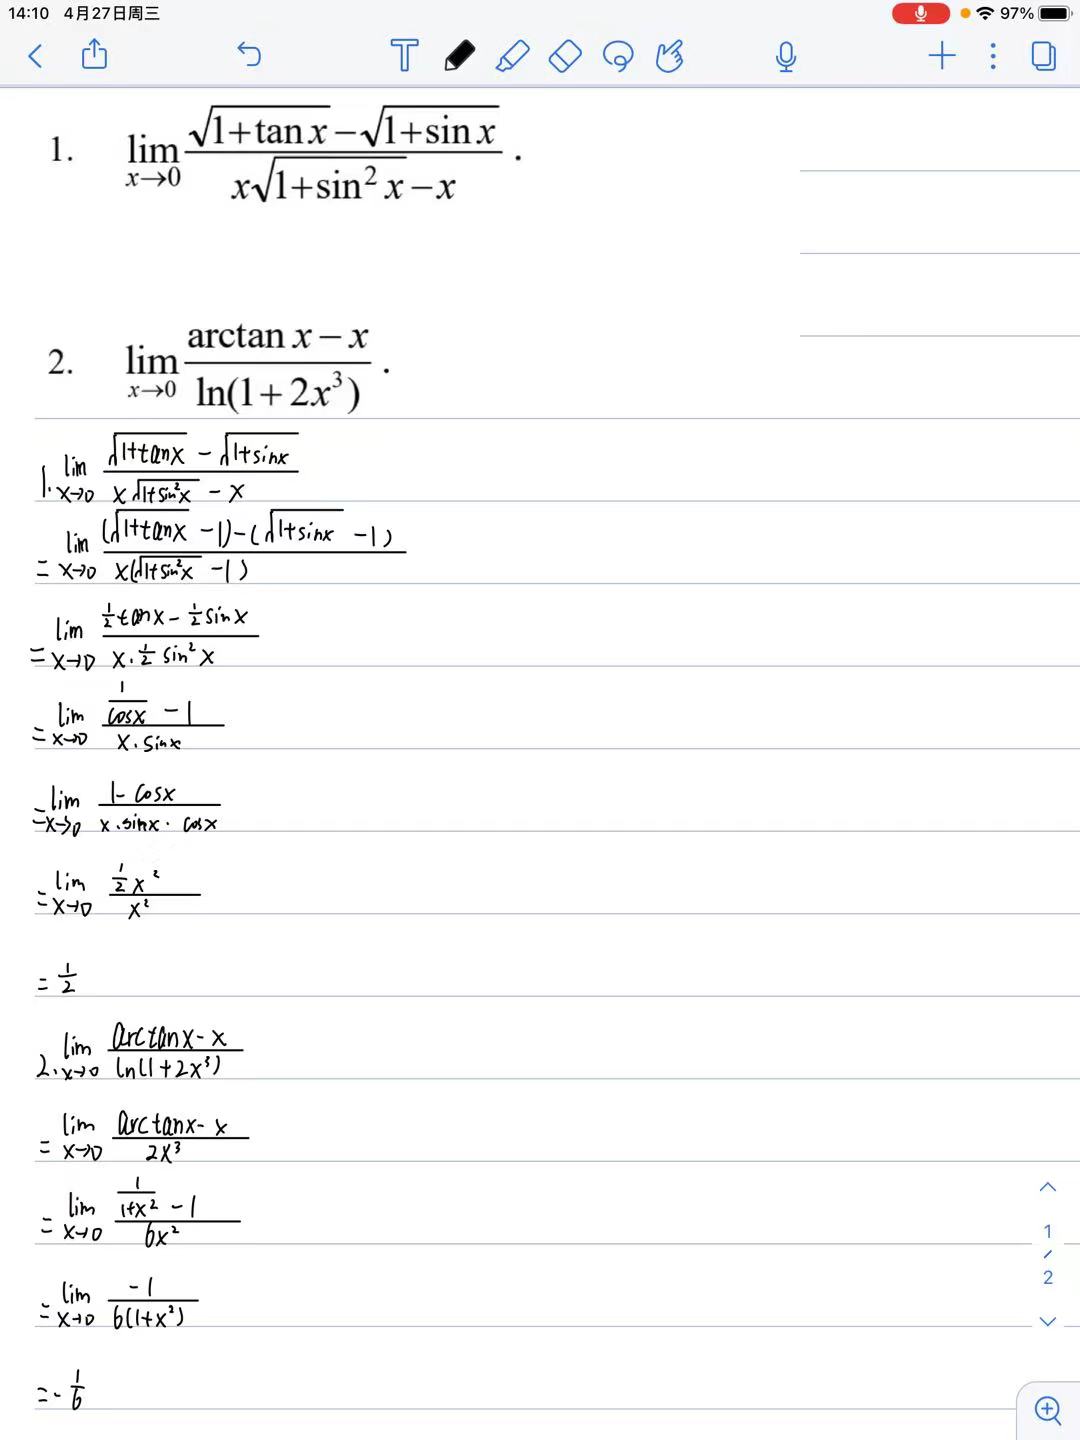 14:10 4月27日周三 97%
1. lim x→0 (√(1+tan x) − √(1+sin x)) / (x√(1+sin² x) − x) .
2. lim x→0 (arctan x − x) / ln(1+2x³) .
1. lim x→0 (√(1+tanx) − √(1+sinx)) / (x√(1+sin²x) − x)
= lim x→0 ((√(1+tanx) −1)−(√(1+sinx) −1)) / (x(√(1+sin²x) −1))
= lim x→0 (½tanx − ½sinx) / (x·½ sin²x)
= lim x→0 (1/cosx − 1) / (x·sinx)
= lim x→0 (1−cosx) / (x·sinx·cosx)
= lim x→0 (½x²) / x²
= ½
2. lim x→0 (arctanx − x) / ln(1+2x³)
= lim x→0 (arctanx − x) / 2x³
= lim x→0 (1/(1+x²) − 1) / 6x²
= lim x→0 −1 / 6(1+x²)
= −1/6
1
/
2